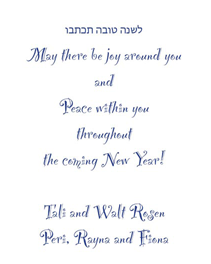 לשנה טובה תכתבו
May there be joy around you
and
Peace within you
throughout
the coming New Year!
Tali and Walt Rosen
Peri, Rayna and Fiona